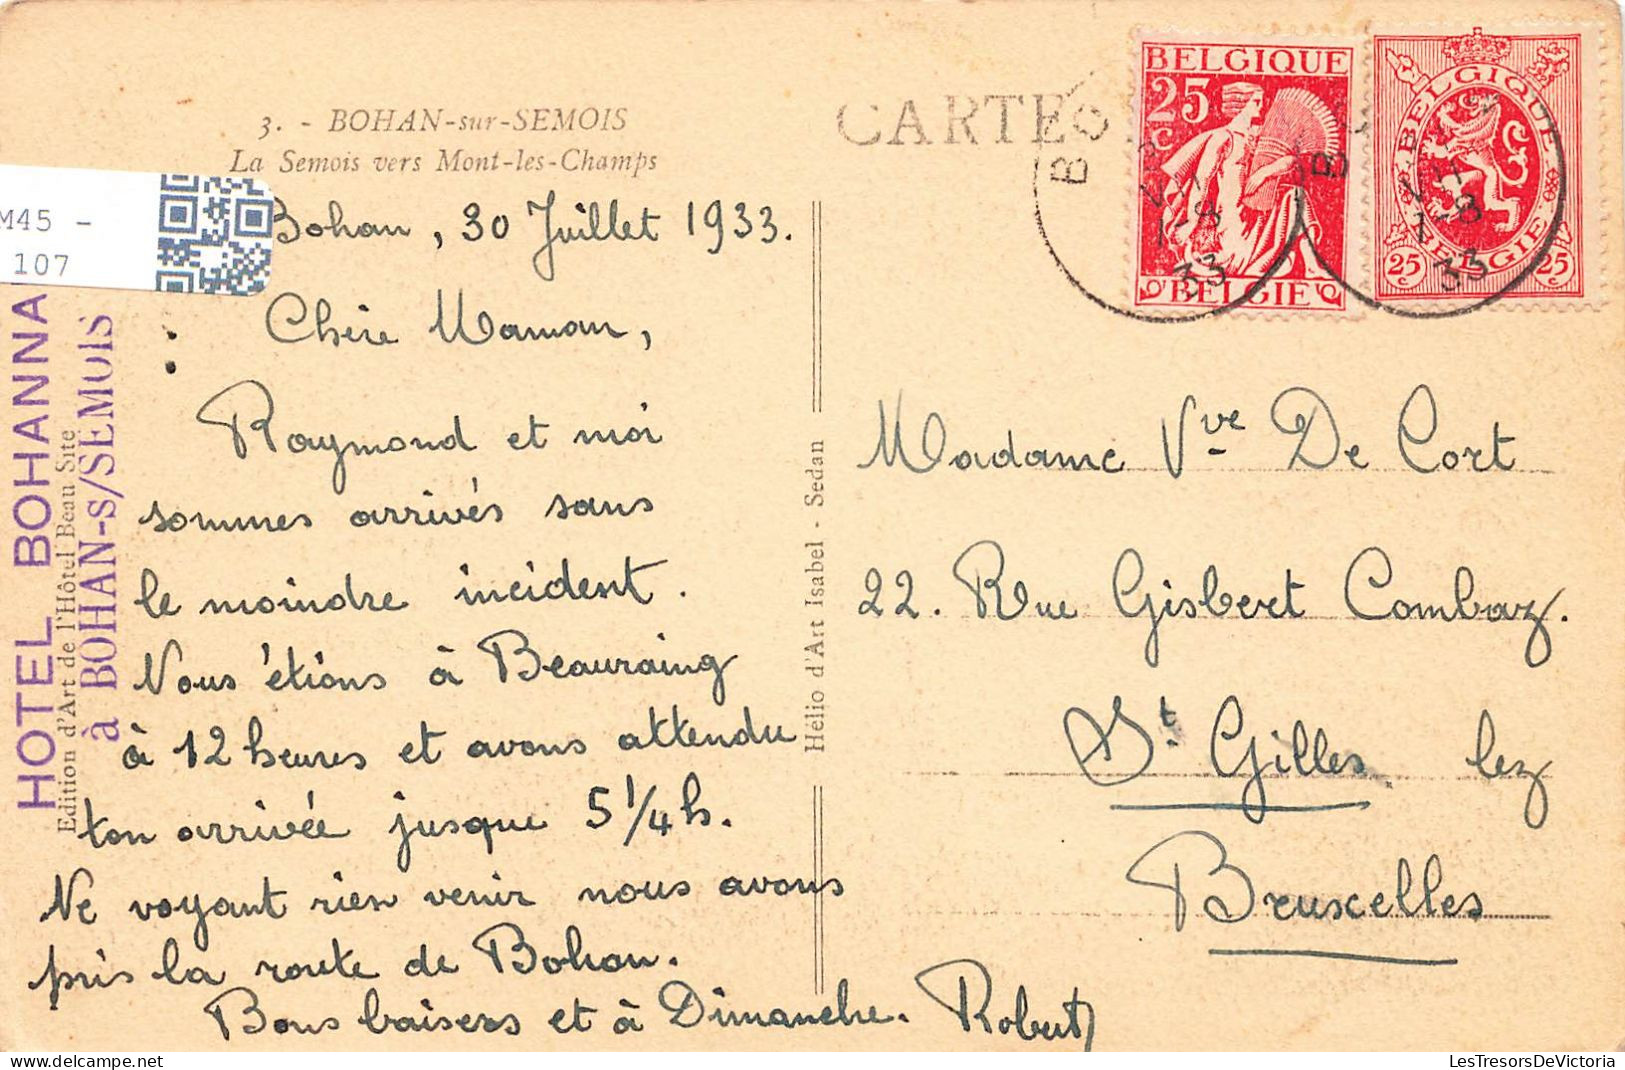 3. - BOHAN-sur-SEMOIS
La Semois vers Mont-les-Champs
CARTE
M45 -
107
HOTEL BOHANNA
à BOHAN-s/SEMOIS
Edition d'Art de l'Hôtel Beau Site
Hélio d'Art Isabel - Sedan
BELGIQUE
25
c
BELGIE
BELGIQUE
BELGIE
25
c
25
c
B
1-8
33
B
1-8
33
Bohan, 30 Juillet 1933.
Chère Maman,
Raymond et moi
sommes arrivés sans
le moindre incident.
Nous étions à Beauraing
à 12 heures et avons attendu
ton arrivée jusque 5 1/4 h.
Ne voyant rien venir nous avons
pris la route de Bohan.
Bons baisers et à Dimanche. Robert
Madame Vve De Cort
22. Rue Gisbert Combaz.
St. Gilles lez
Bruxelles
LesTresorsDeVictoria